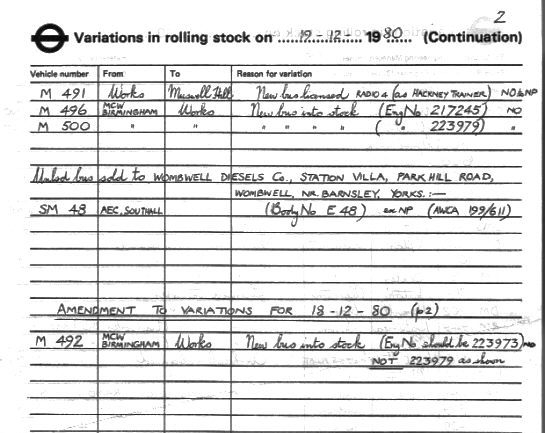 2
Variations in rolling stock on ......19-12...... 1980...... (Continuation)
Vehicle number From To Reason for variation
M 491 Works Muswell Hill New bus licensed RADIO 4 (as HACKNEY TRAINER) NO & NP
M 496 MCW BIRMINGHAM Works New bus into stock (Eng No 217245) NO
M 500 " " " " " " ( " 223979) "
Unlsd bus sold to WOMBWELL DIESELS Co., STATION VILLA, PARK HILL ROAD,
WOMBWELL, NR. BARNSLEY, YORKS. :—
SM 48 AEC, SOUTHALL (Body No E 48) ex NP (AWCA 199/611)
AMENDMENT TO VARIATIONS FOR 18-12-80 (p2)
M 492 MCW BIRMINGHAM Works New bus into stock (Eng No should be 223973) NO
NOT 223979 as shown